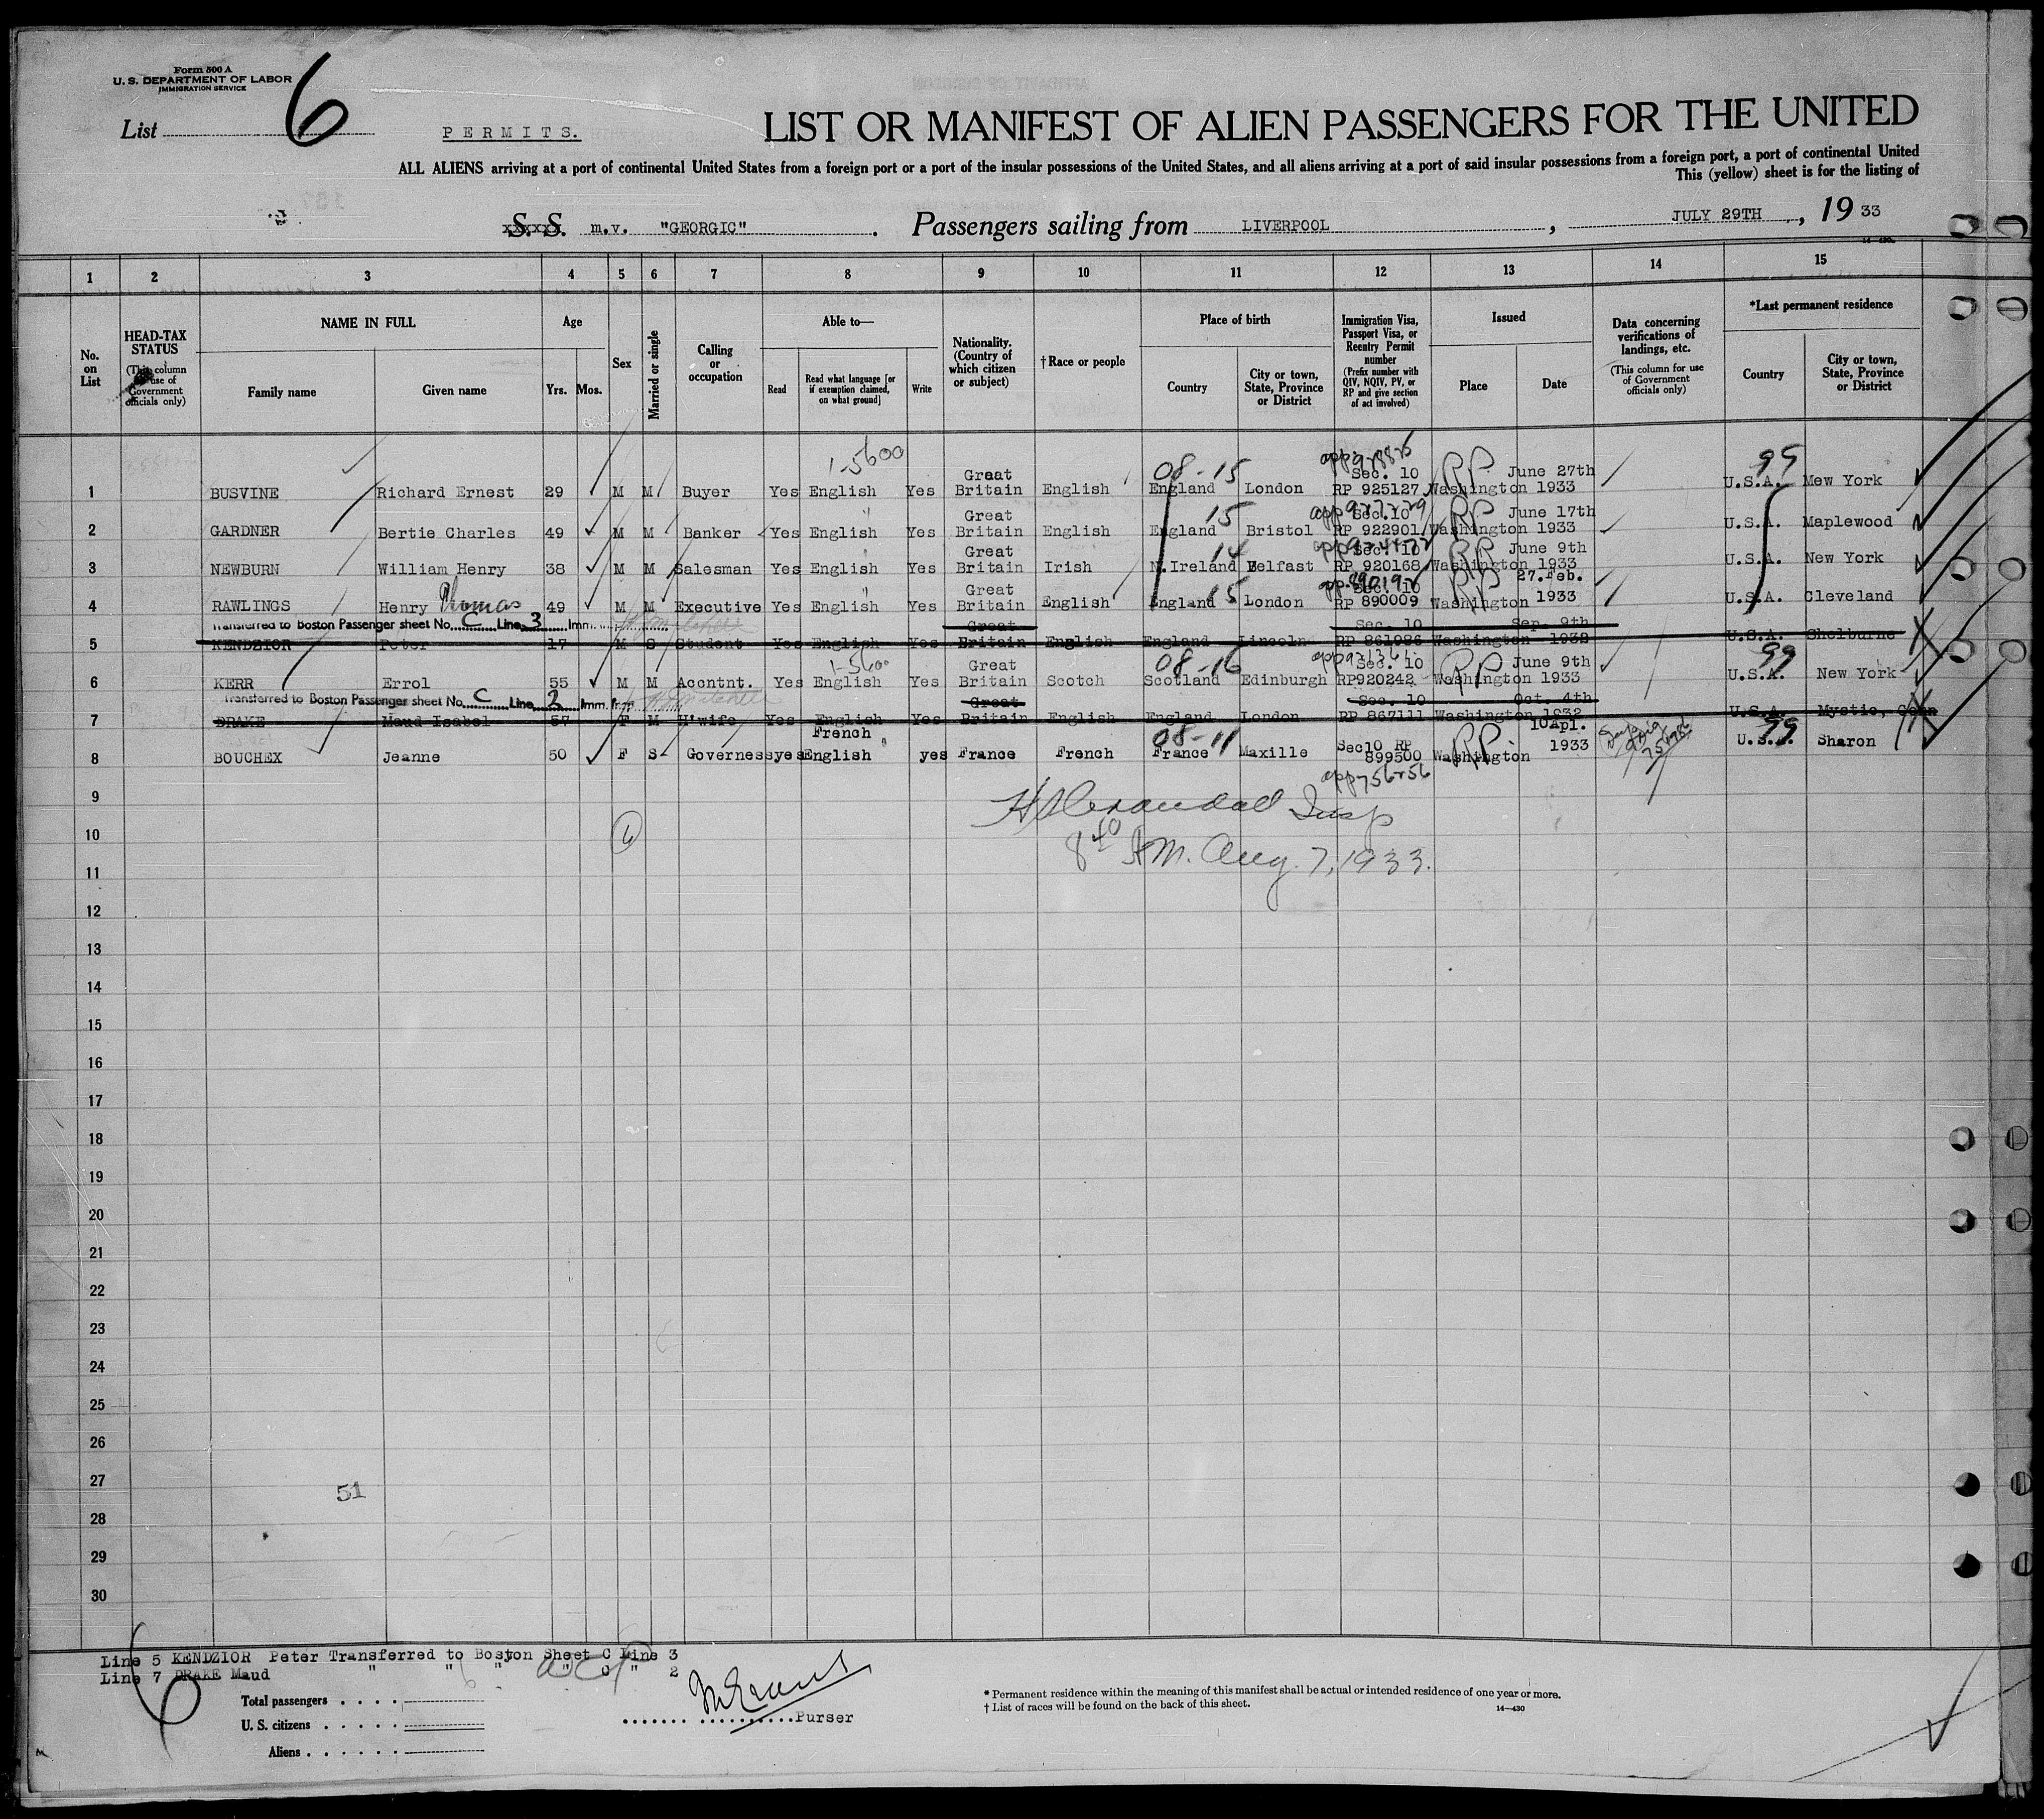 Form 500 A
U. S. DEPARTMENT OF LABOR
IMMIGRATION SERVICE
List 6
PERMITS.
LIST OR MANIFEST OF ALIEN PASSENGERS FOR THE UNITED
ALL ALIENS arriving at a port of continental United States from a foreign port or a port of the insular possessions of the United States, and all aliens arriving at a port of said insular possessions from a foreign port, a port of continental United
This (yellow) sheet is for the listing of
S. S. m.v. "GEORGIC". Passengers sailing from LIVERPOOL, JULY 29TH, 19 33
14—430
1 2 3 4 5 6 7 8 9 10 11 12 13 14 15
No. on List
HEAD-TAX STATUS (This column for use of Government officials only)
NAME IN FULL Family name Given name
Age Yrs. Mos.
Sex
Married or single
Calling or occupation
Able to— Read Read what language [or if exemption claimed, on what ground] Write
Nationality. (Country of which citizen or subject)
†Race or people
Place of birth Country City or town, State, Province or District
Immigration Visa, Passport Visa, or Reentry Permit number (Prefix number with QIV, NQIV, PV, or RP and give section of act involved)
Issued Place Date
Data concerning verifications of landings, etc. (This column for use of Government officials only)
*Last permanent residence Country City or town, State, Province or District
1-5600 08-15 RP 99
1 BUSVINE Richard Ernest 29 M M Buyer Yes English Yes Great Britain English England London Sec. 10 RP 925127 Washington June 27th 1933 U.S.A. Mew York
15 RP
2 GARDNER Bertie Charles 49 M M Banker Yes English Yes Great Britain English England Bristol Sec. 10 RP 922901 Washington June 17th 1933 U.S.A. Maplewood
14 RP
3 NEWBURN William Henry 38 M M Salesman Yes English Yes Great Britain Irish N.Ireland Belfast Sec. 10 RP 920168 Washington June 9th 1933 U.S.A. New York
15 RP
4 RAWLINGS Henry Thomas 49 M M Executive Yes English Yes Great Britain English England London Sec. 10 RP 890009 Washington 27.Feb. 1933 U.S.A. Cleveland
Transferred to Boston Passenger sheet No. C Line 3 Imm.
5 KENDZIOR Peter 17 M S Student Yes English Yes Great Britain English England Lincoln Sec. 10 RP 861086 Washington Sep. 9th 1932 U.S.A. Shelburne
1-5600 08-16 RP 99
6 KERR Errol 55 M M Accntnt. Yes English Yes Great Britain Scotch Scotland Edinburgh Sec. 10 RP920242 Washington June 9th 1933 U.S.A. New York
Transferred to Boston Passenger sheet No. C Line 2 Imm.
7 DRAKE Maud Isabel 57 F M H'wife Yes English Yes Great Britain English England London Sec. 10 RP 867111 Washington Oct. 4th 1932 U.S.A. Mystic, Conn
08-11 RP 99
8 BOUCHEX Jeanne 50 F S Governess yes French English yes France French France Maxille Sec10 RP 899500 Washington 10Apl. 1933 U.S.A. Sharon
9
10 6
8 40 AM. Aug. 7, 1933.
11
12
13
14
15
16
17
18
19
20
21
22
23
24
25
26
27
51
28
29
30
Line 5 KENDZIOR Peter Transferred to Boston Sheet C Line 3
Line 7 DRAKE Maud " " " " C " 2
6
Total passengers
U. S. citizens
Aliens
Purser
* Permanent residence within the meaning of this manifest shall be actual or intended residence of one year or more.
† List of races will be found on the back of this sheet.
14—430